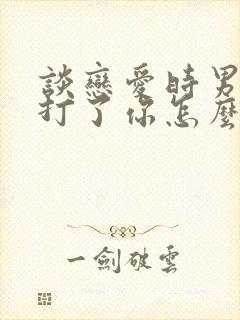 談戀愛時男
打了你怎麼
一劍破雲